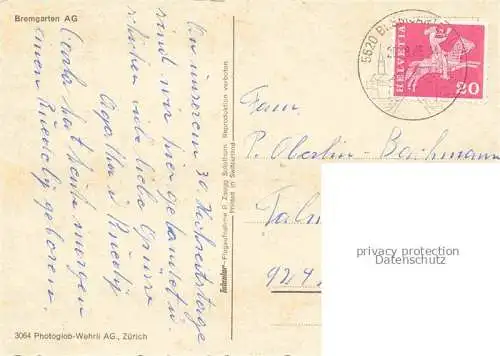 Bremgarten AG
An unserem 30. Hochzeitstage
sind wir hier gelandet u.
schicken viele liebe Grüsse
Agatha & Ruedy
hat heute morgen
einen geboren.
3064 Photoglob-Wehrli AG., Zürich
Flugaufnahme P. Zaugg Solothurn. Reproduktion verboten.
Printed in Switzerland
5620
HELVETIA
20
Fam.
P. Oberlin-Bachmann
924
privacy protection
Datenschutz